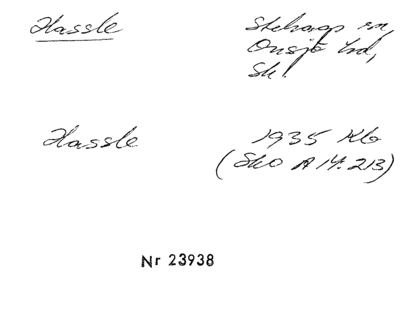 Hassle
Stehags sn,
Onsjö hd,
Sk.
Hassle
1935 Kb
(Sko A 14:213)
Nr 23938